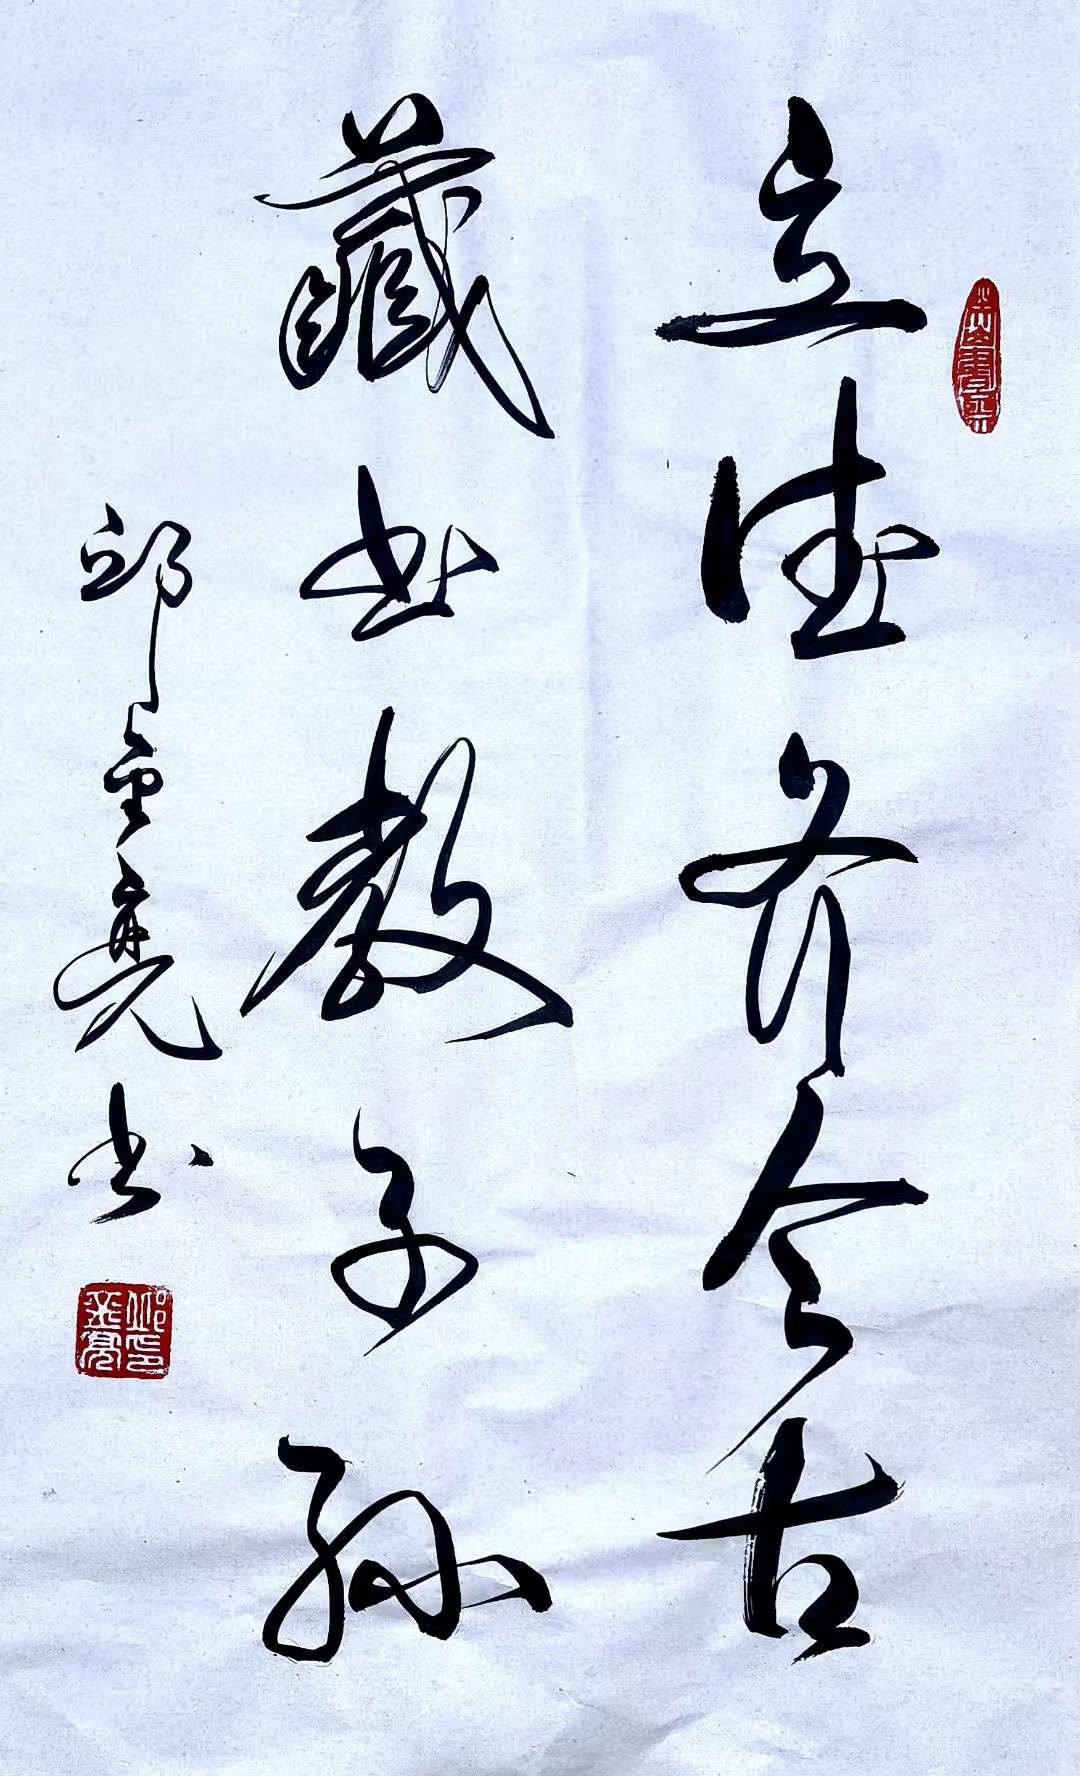 立德齐今古
藏书教子孙
邱重亮书